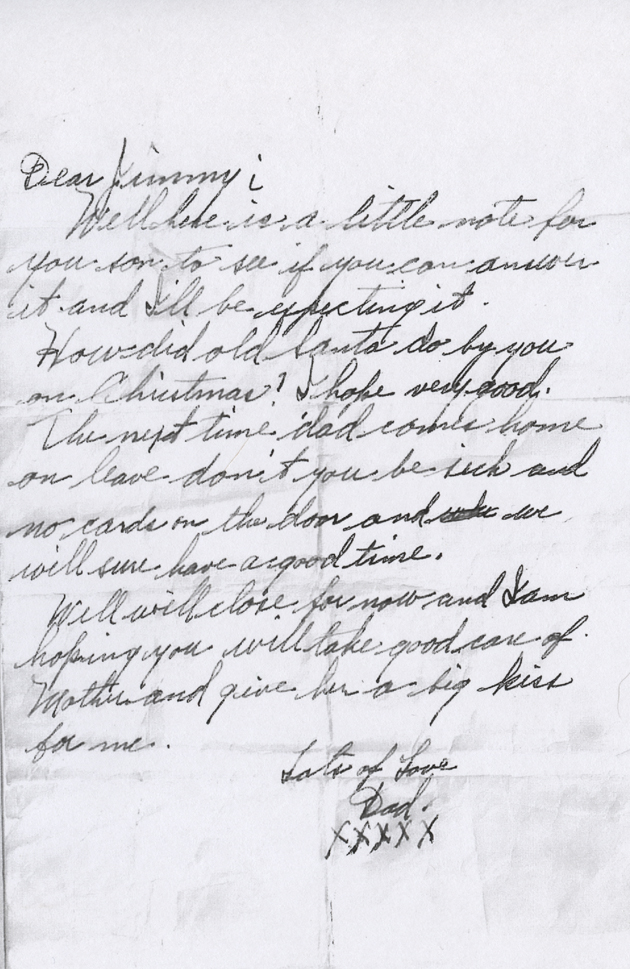 Dear Jimmy;
Well here is a little note for
you son to see if you can answer
it and I'll be expecting it.
How did old Santa do by you
on Christmas? I hope very good.
The next time dad comes home
on leave don't you be sick and
no cards on the door and we
will sure have a good time.
Well will close for now and I am
hoping you will take good care of
Mother and give her a big kiss
for me.
Lots of Love
Dad.
XXXXX